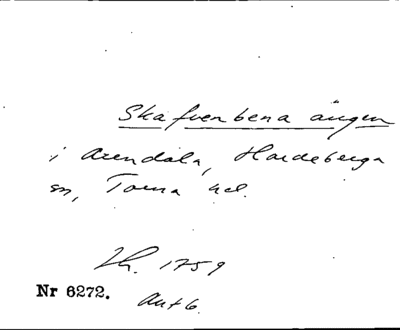 Skafvenbena ängen
i Arendala, Hardeberga
sn, Torna hd.
Lh. 1759
Nr 6272. Avt 6.